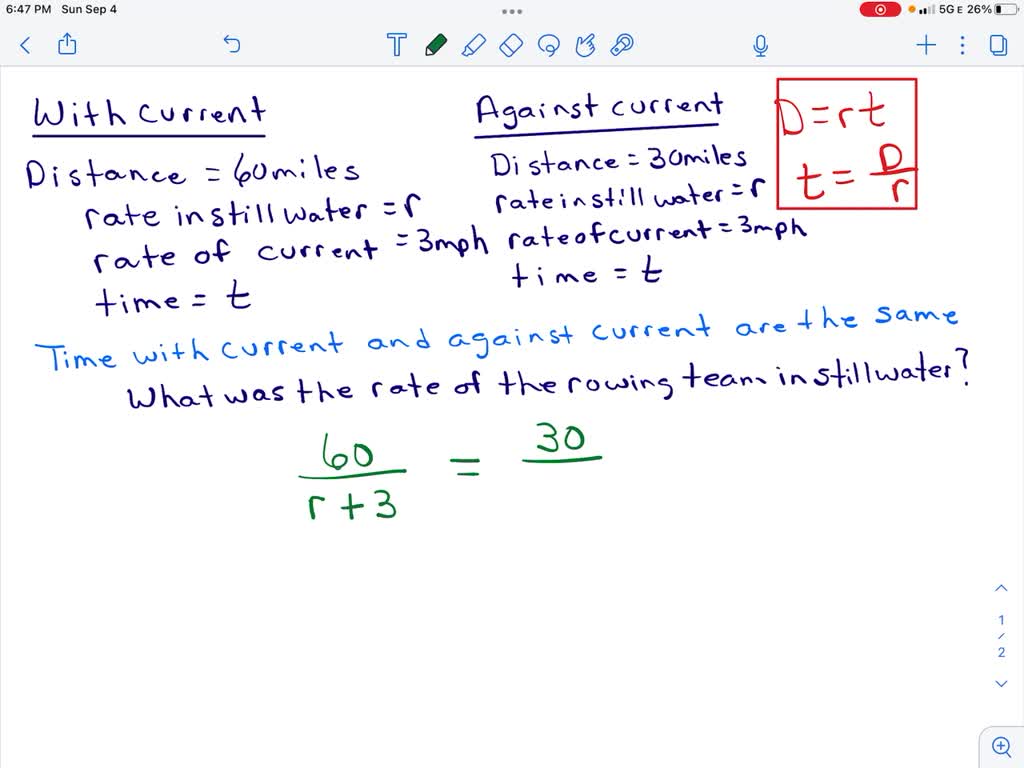 6:47 PM Sun Sep 4
5G E 26%
With current
Distance = 60 miles
rate in still water = r
rate of current = 3mph
time = t
Against current
Distance = 30 miles
rate in still water = r
rate of current = 3mph
time = t
D = rt
t = D/r
Time with current and against current are the same
What was the rate of the rowing team in still water?
60/r+3 = 30/
1/2